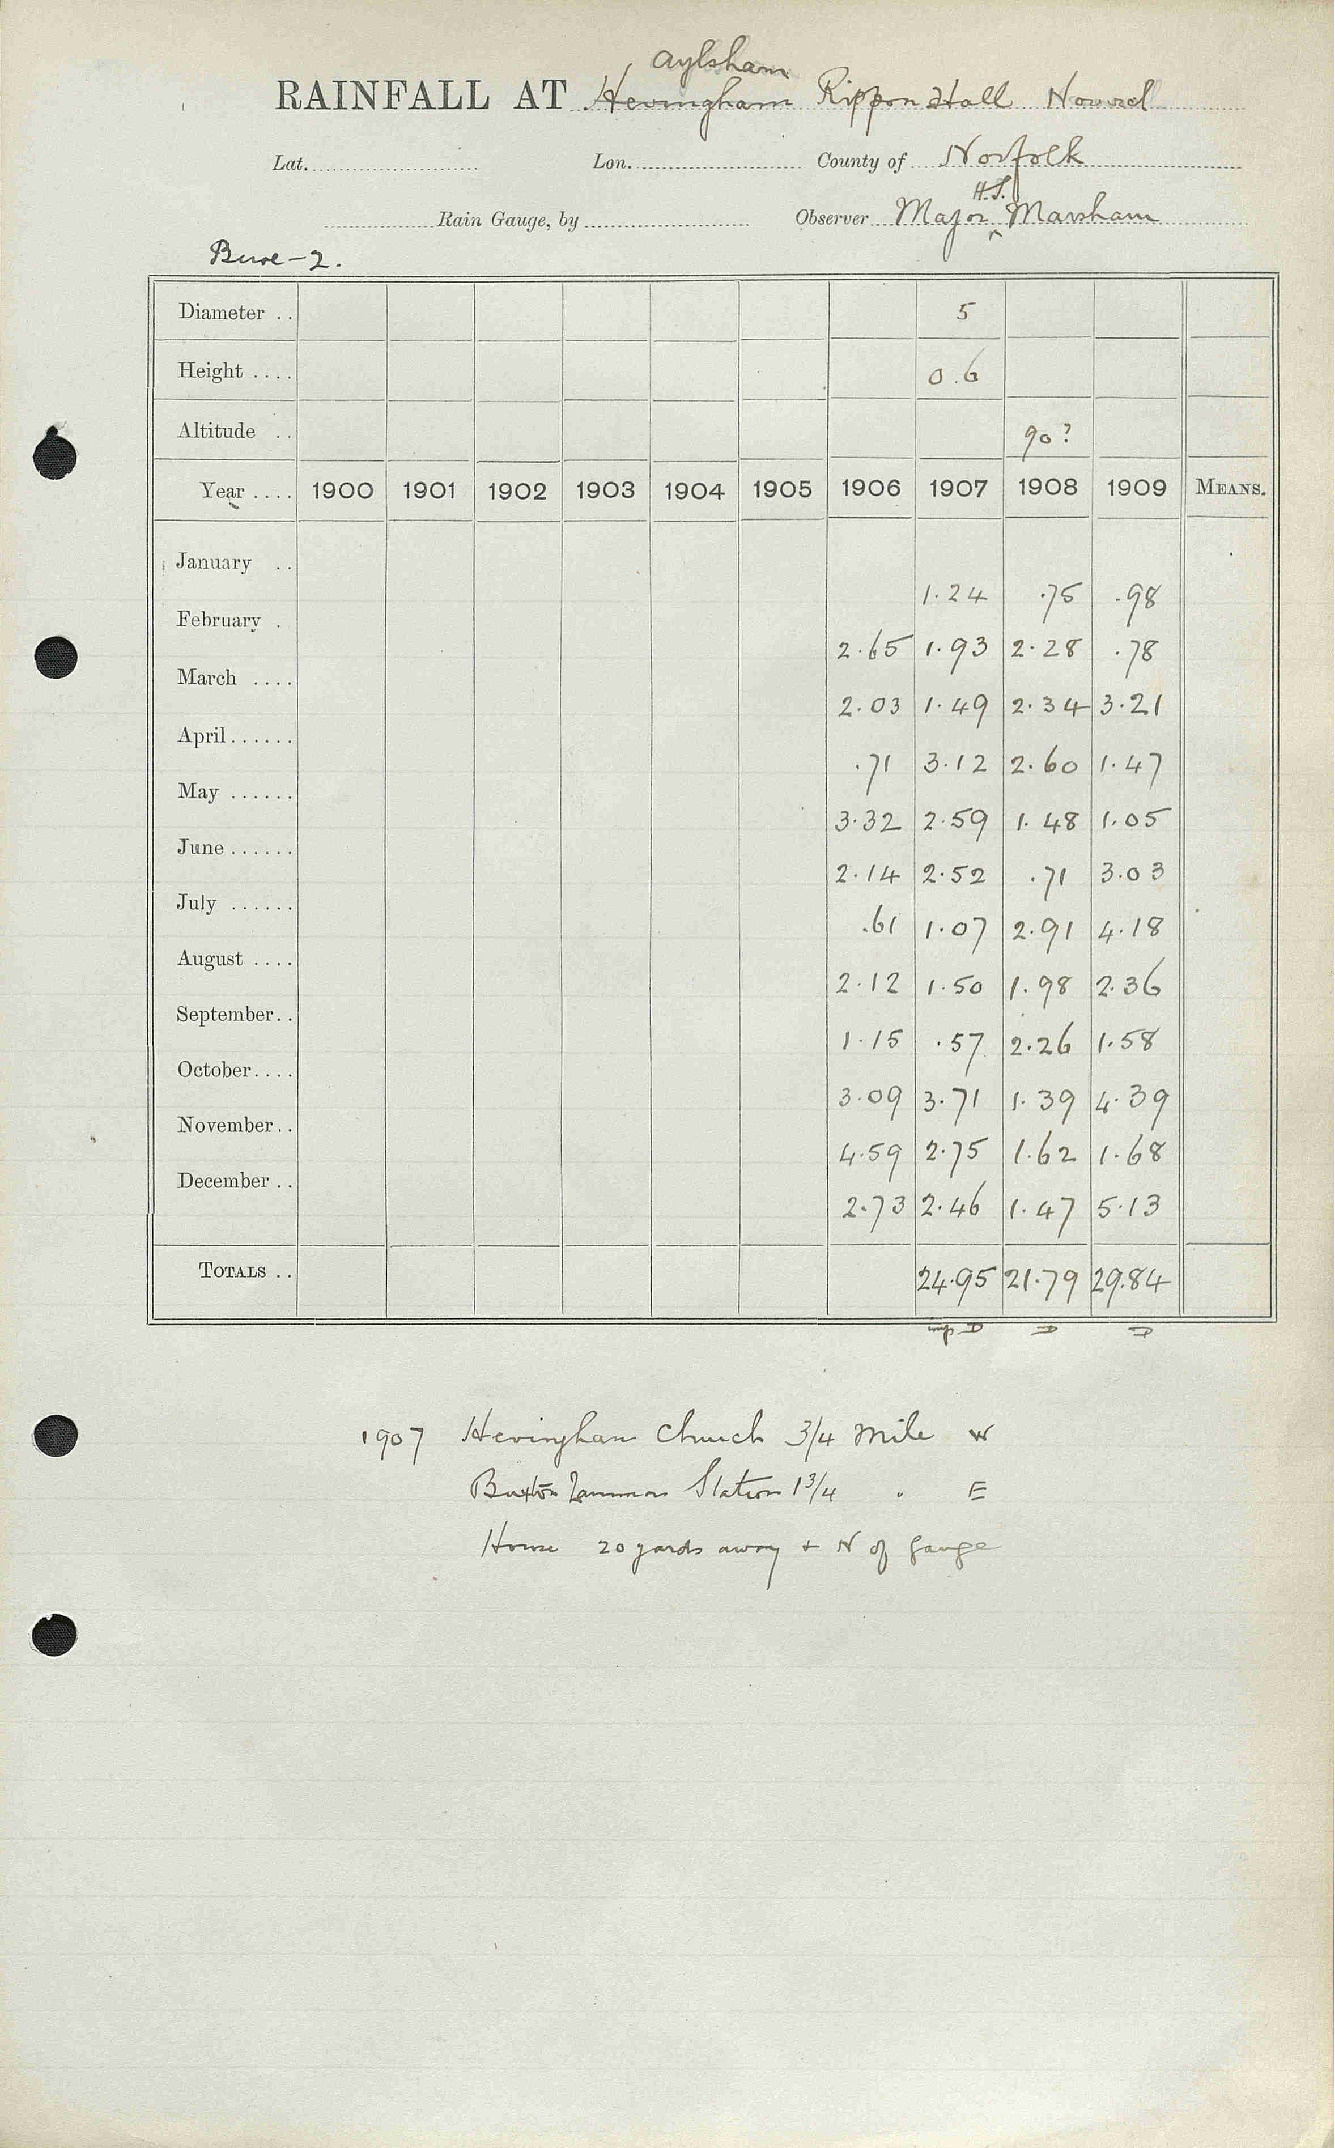 Aylsham
RAINFALL AT Hevingham Rippon Hall
Lat. Lon. County of Norfolk
H.S.
Rain Gauge, by Observer Major Marsham
Bure-2.
Diameter .. 5
Height .... 0.6
Altitude .. 90?
Year .... 1900 1901 1902 1903 1904 1905 1906 1907 1908 1909 MEANS.
January .. 1.24 .75 .98
February . 2.65 1.93 2.28 .78
March .... 2.03 1.49 2.34 3.21
April...... .71 3.12 2.60 1.47
May ...... 3.32 2.59 1.48 1.05
June...... 2.14 2.52 .71 3.03
July ...... .61 1.07 2.91 4.18
August .... 2.12 1.50 1.98 2.36
September.. 1.15 .57 2.26 1.58
October.... 3.09 3.71 1.39 4.39
November.. 4.59 2.75 1.62 1.68
December .. 2.73 2.46 1.47 5.13
TOTALS .. 24.95 21.79 29.84
D D D
1907 Hevingham Church 3/4 mile W
Buxton Lammas Station 1 3/4 " E
House 20 yards away + N of gauge